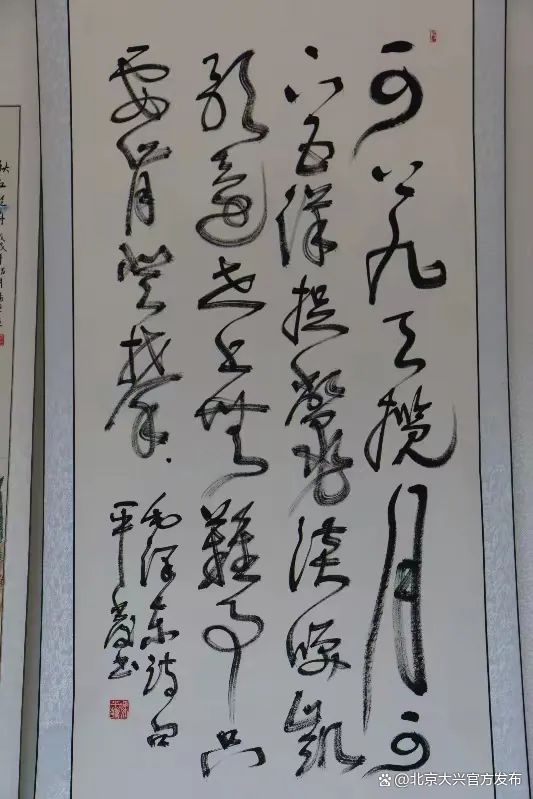 可上九天揽月可
下五洋捉鳖谈笑凯
歌還世上無難事只
要肯登攀
毛泽东诗句
平
书
@北京大兴官方发布